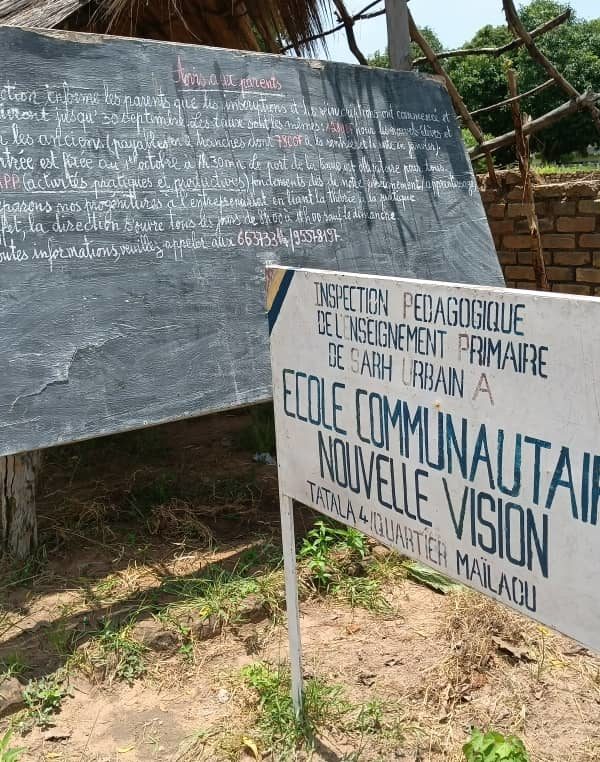 Avis aux parents
ction informe les parents que les inscriptions et les réinscriptions ont commencé et
dureront jusqu'au 30 septembre. Les taux sont les mêmes: pour les nouveaux élèves et
les anciens (payables en tranches dont 7500F à la rentrée et le reste en janvier).
ntrée est fixée au 1er octobre à 7H30mn. Le port de la tenue est obligatoire pour tous.
APP (activités pratiques et productives) fondements clés de notre enseignement/apprentissage
réparons nos progénitures à l'entrepreneuriat en liant la théorie à la pratique
fet, la direction s'ouvre tous les jours de 8H00 à 11H00 sauf le dimanche.
outes informations, veuillez appeler aux
INSPECTION PEDAGOGIQUE
DE L'ENSEIGNEMENT PRIMAIRE
DE SARH URBAIN A
ECOLE COMMUNAUTAIR
NOUVELLE VISION
TATALA 4 /QUARTIER MAÏLAOU